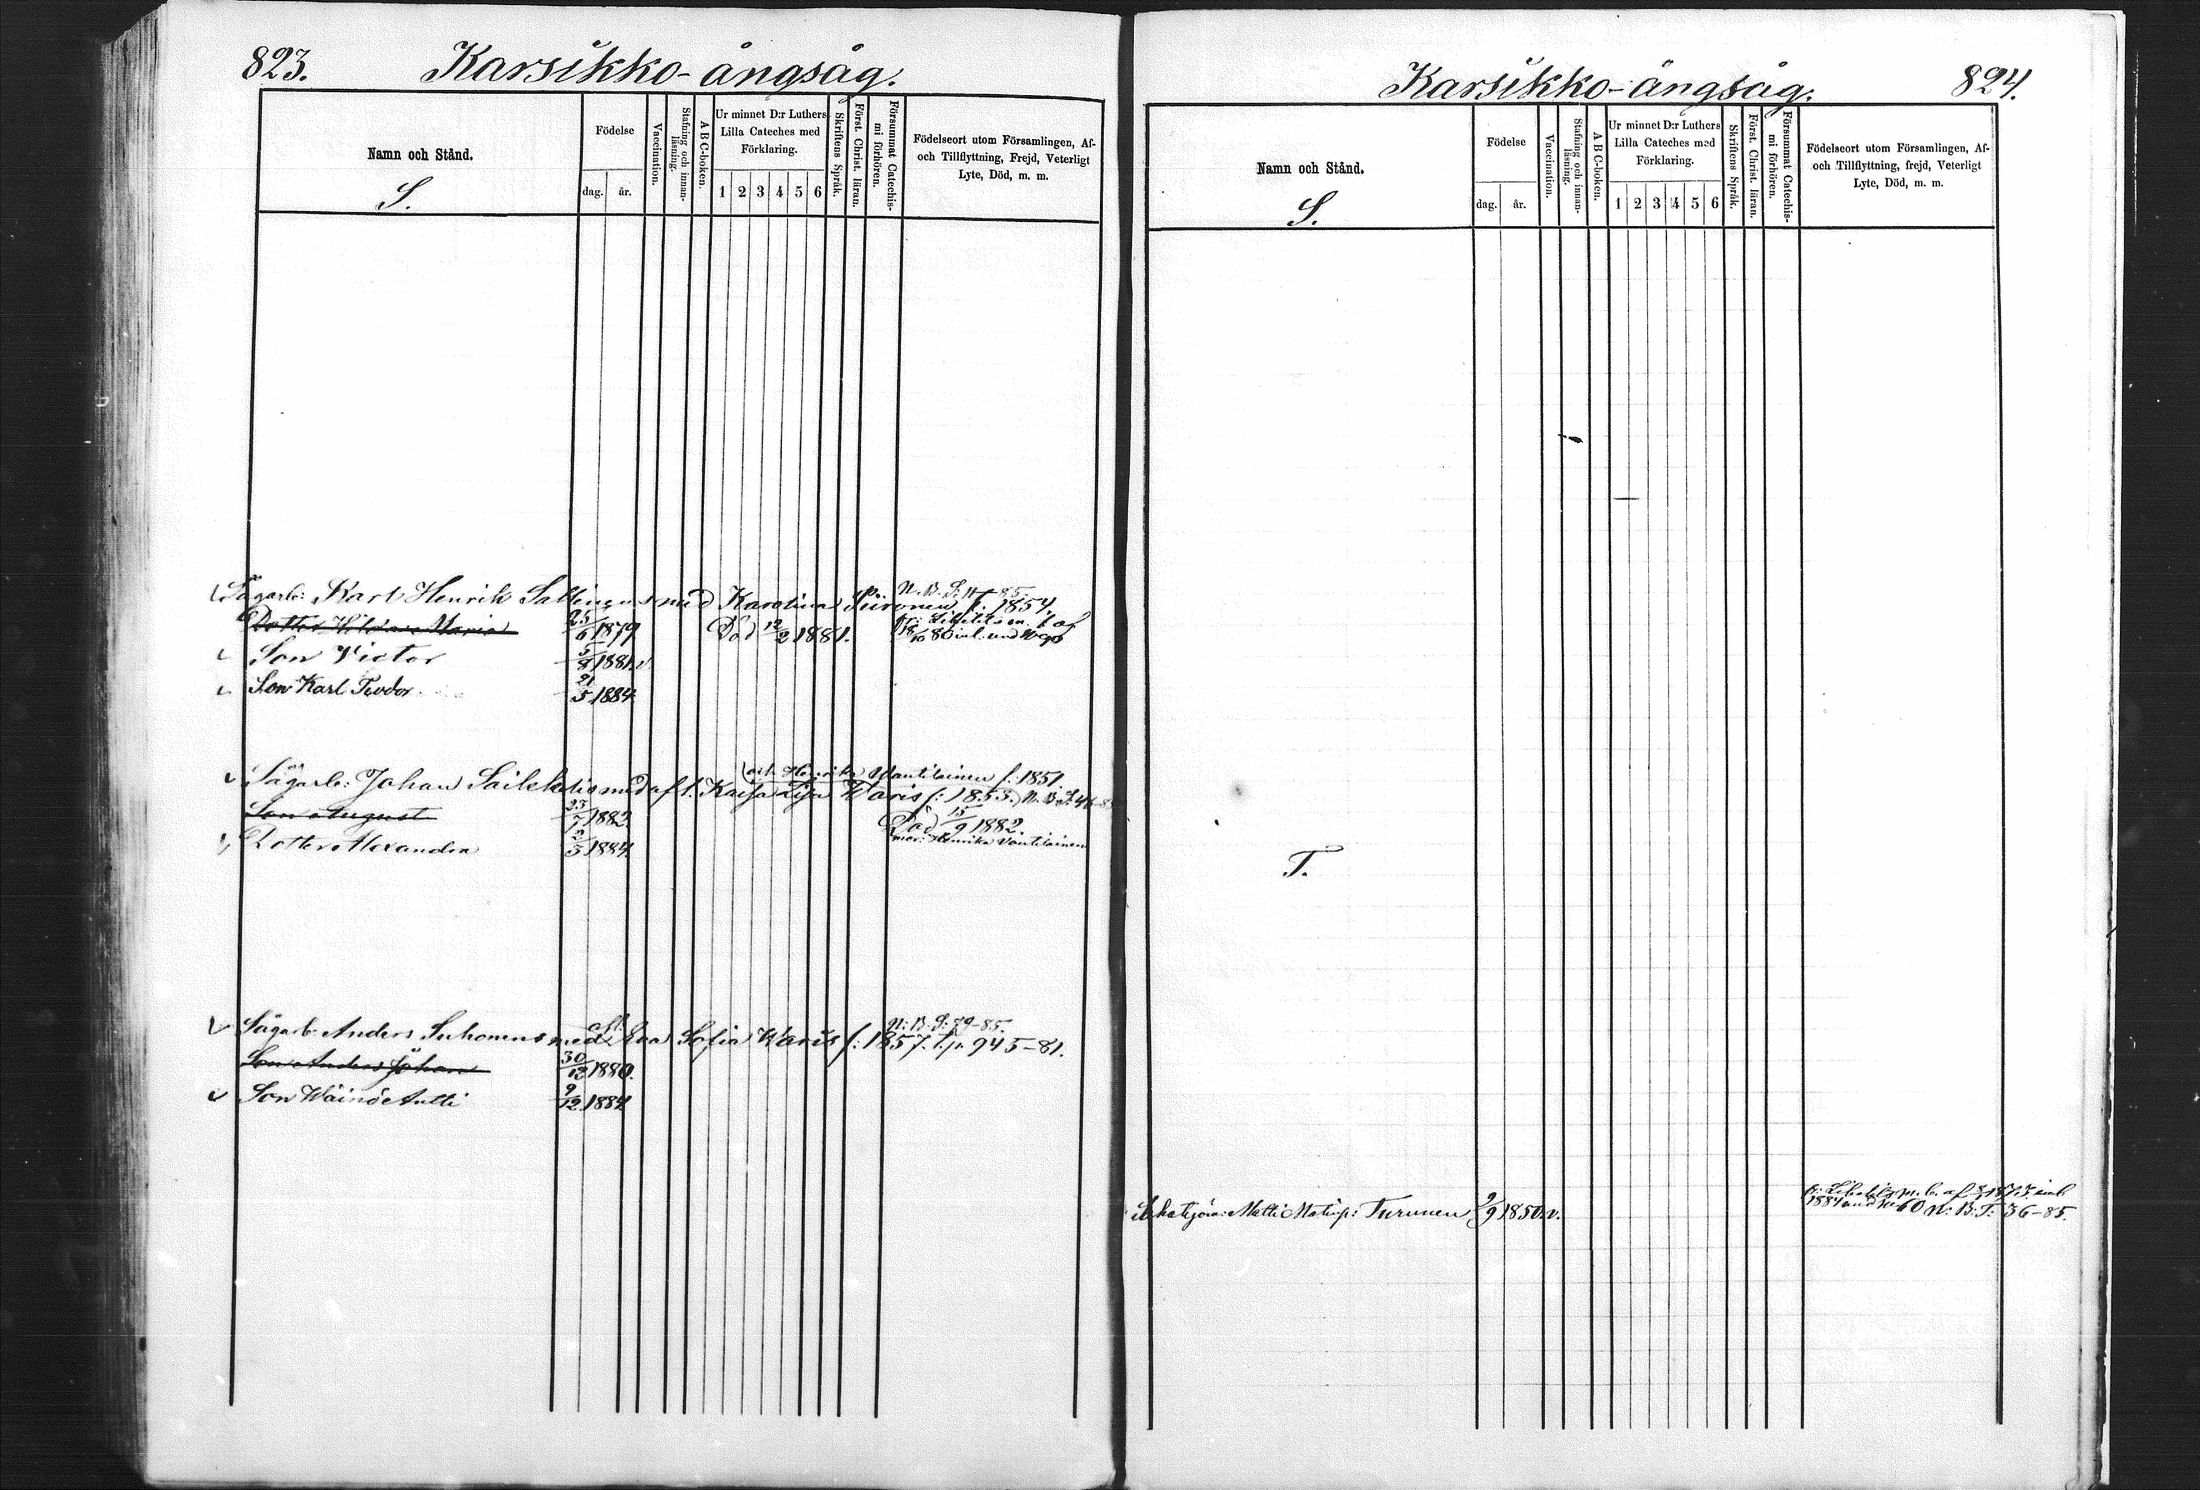 823. Karsikko-ångsåg.
Namn och Stånd.
S.
Födelse
dag. år.
Vaccination.
Stafning och innanläsning.
A B C-boken.
Ur minnet D:r Luthers
Lilla Cateches med
Förklaring.
1 2 3 4 5 6
Skriftens Språk.
Först. Christ. läran.
Försummat Catechismi förhören.
Födelseort utom Församlingen, Af-
och Tillflyttning, Frejd, Veterligt
Lyte, Död, m. m.
N. B. S. 85.
Sågarb: Karl Henrik med Karolina f: 1854.
Dotter Maria 25/6 1879 Död 12/2 1881.
Son Victor 5/8 1881. v.
Son Karl Teodor. 21/5 1884
och Henrika Vantilainen f: 1851.
Sågarb: Johan med afl. Kaisa Lisa Waris f: 1853.) N. B. S.
Son August 23/7 1882. Död 15/9 1882.
Dotter Alexandra 2/3 1884 mor: Henrika Vantilainen
N: B. S: 79-85.
Sågarb Anders Suhonens med Eva Sofia Waris f: 1857. t. p. 945-81.
Son Anders Johan 30/12 1880.
Son Wäinö Antti 9/12 1884
Karsikko-ångsåg. 824.
Namn och Stånd.
S.
Födelse
dag. år.
Vaccination.
Stafning och innanläsning.
A B C-boken.
Ur minnet D:r Luthers
Lilla Cateches med
Förklaring.
1 2 3 4 5 6
Skriftens Språk.
Först. Christ. läran.
Försummat Catechismi förhören.
Födelseort utom Församlingen, Af-
och Tillflyttning, frejd, Veterligt
Lyte, Död, m. m.
T.
Matti Turunen 9/9 1850. v.
1884 und N: 60 N: B: T: 36-85.